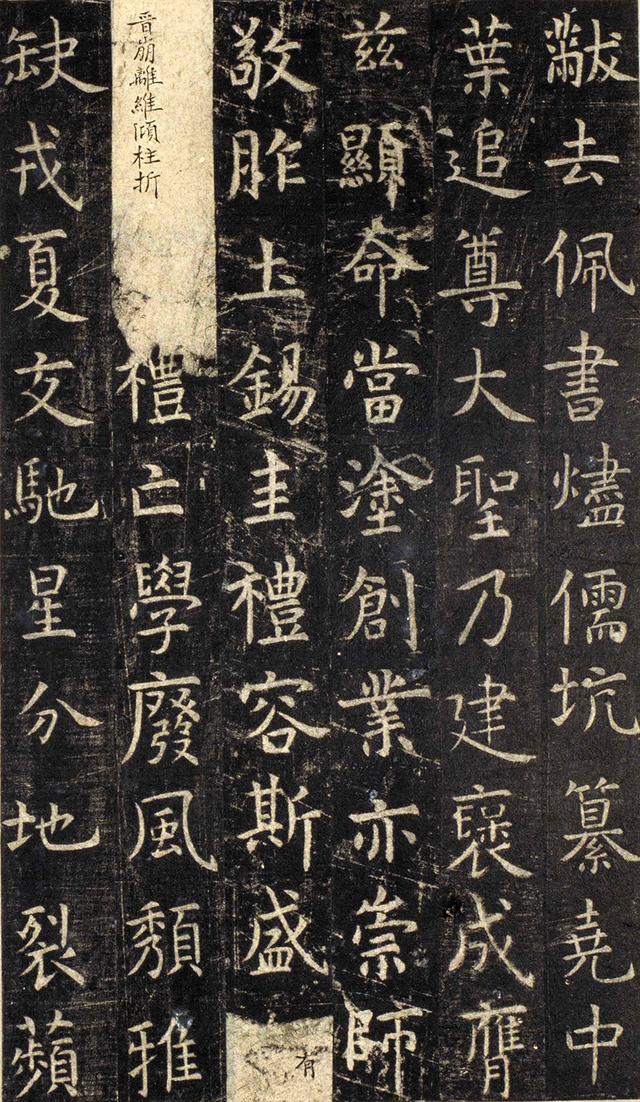 黻去佩書燼儒坑纂堯中
葉追尊大聖乃建褒成膺
兹顯命當塗創業亦崇師
敬胙土錫圭禮容斯盛有
晉崩離維傾柱折禮亡學廢風頹雅
缺戎夏交馳星分地裂蘋